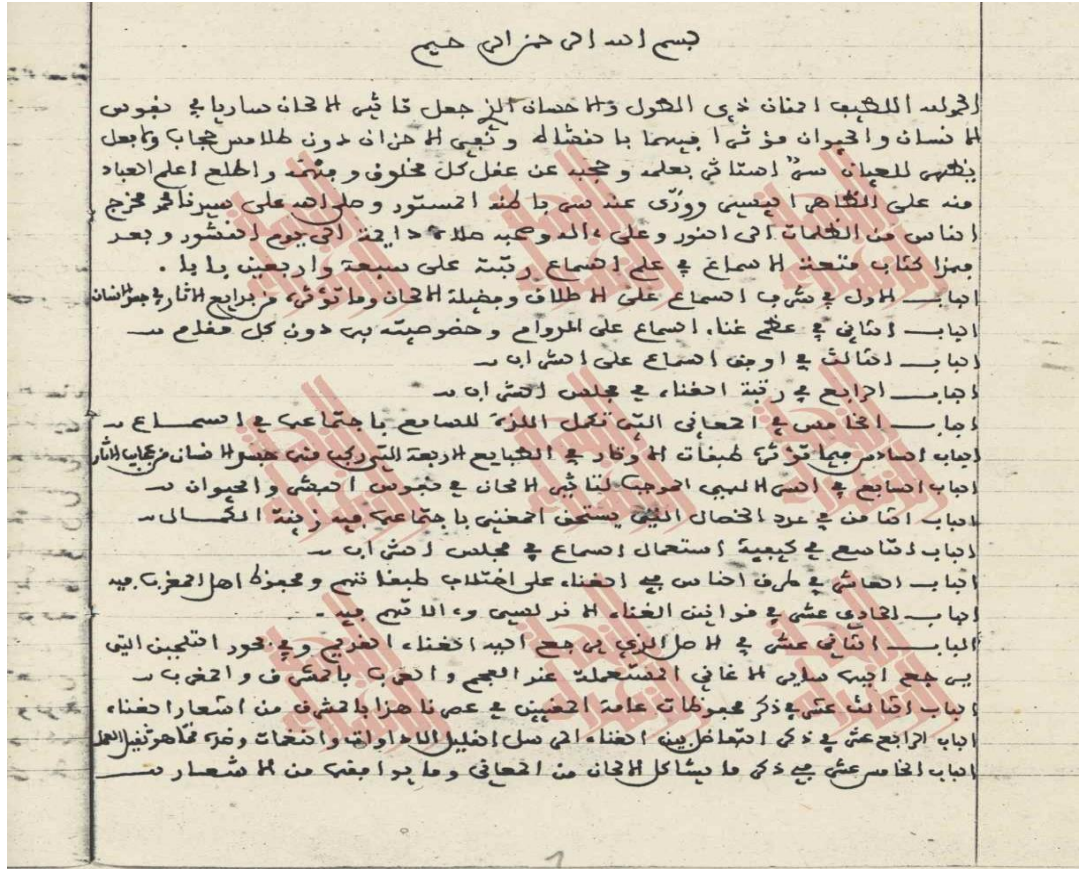 بسم الله الرحمن الرحيم
الحمد لله اللطيف المنان ذي الطول والاحسان الذي جعل تاثير الالحان ساريا في نفوس
الانسان والحيوان مؤثرا فيهما بانفضاله ونفي الاحزان دون طلامس حجاب وما جعل
يظهر للعيان سر استاثر بعلمه وحجبه عن عقل كل مخلوق ومنعه واطلع اعلم العباد
منه على الظاهر اليسير وورى عنه سر باطنه المستور وصلى الله على سيدنا محمد مخرج
الناس من الظلمات الى النور وعلى ءاله وصحبه صلاة دايمة الى يوم النشور وبعد
فهذا كتاب متعة الاسماع في علم السماع رتبته على سبعة واربعين بابا .
الباب الاول في شرف السماع على الاطلاق وفضيلة الالحان وما تؤثر من بدايع الاثار في جنس الانسان
الباب الثاني في عظم غناء السماع على المدوام وخصوصيته به دون كل مطعم
الباب الثالث في اوجه السماع على الشراب
الباب الرابع في رتبة الغناء في مجلس الشراب
الباب الخامس في المعاني التي تكمل اللذة للسامع باجتماعها في السماع
الباب السادس فيما تؤثره طبقات الاوتار في الطبايع الاربعة التي ركب منها جنس الانسان من عجايب الاثار
الباب السابع في السر الالهي الموجب لتاثير الالحان في نفوس البشر والحيوان
الباب الثامن في عدد الخصال التي يستحق المغني باجتماعها فيه رتبة الكمال
الباب التاسع في كيفية استعمال السماع في مجلس الشراب
الباب العاشر في طرق الناس في الغناء على اختلاف طبقاتهم ومحفوظ اهل المغرب فيه
الباب الحادي عشر في قوانين الغناء الاندلسي وءالاتهم فيه .
الباب الثاني عشر في الاصل الذي يرجع اليه الغناء القديم وفي بحور التلحين التي
يرجع اليها ساير الاغاني المستعملة عند العجم والعرب بالمشرق والمغرب
الباب الثالث عشر في ذكر محفوظات عامة المغنين في عصرنا هذا بالمشرق من اشعار الغناء
الباب الرابع عشر في ذكر التفاضل بين الغناء المرسل القليل الاداوات والنغمات وضده مما هو ثقيل العمل
الباب الخامس عشر في ذكر ما يشاكل الالحان من المعاني وما يوافقها من الاشعار